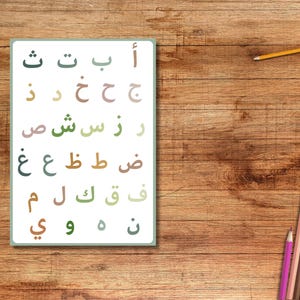 أ ب ت ث
ج ح خ ر ز
ر ز س ش ص
ض ط ظ ع غ
ف ق ك ل م
ن ه و ي